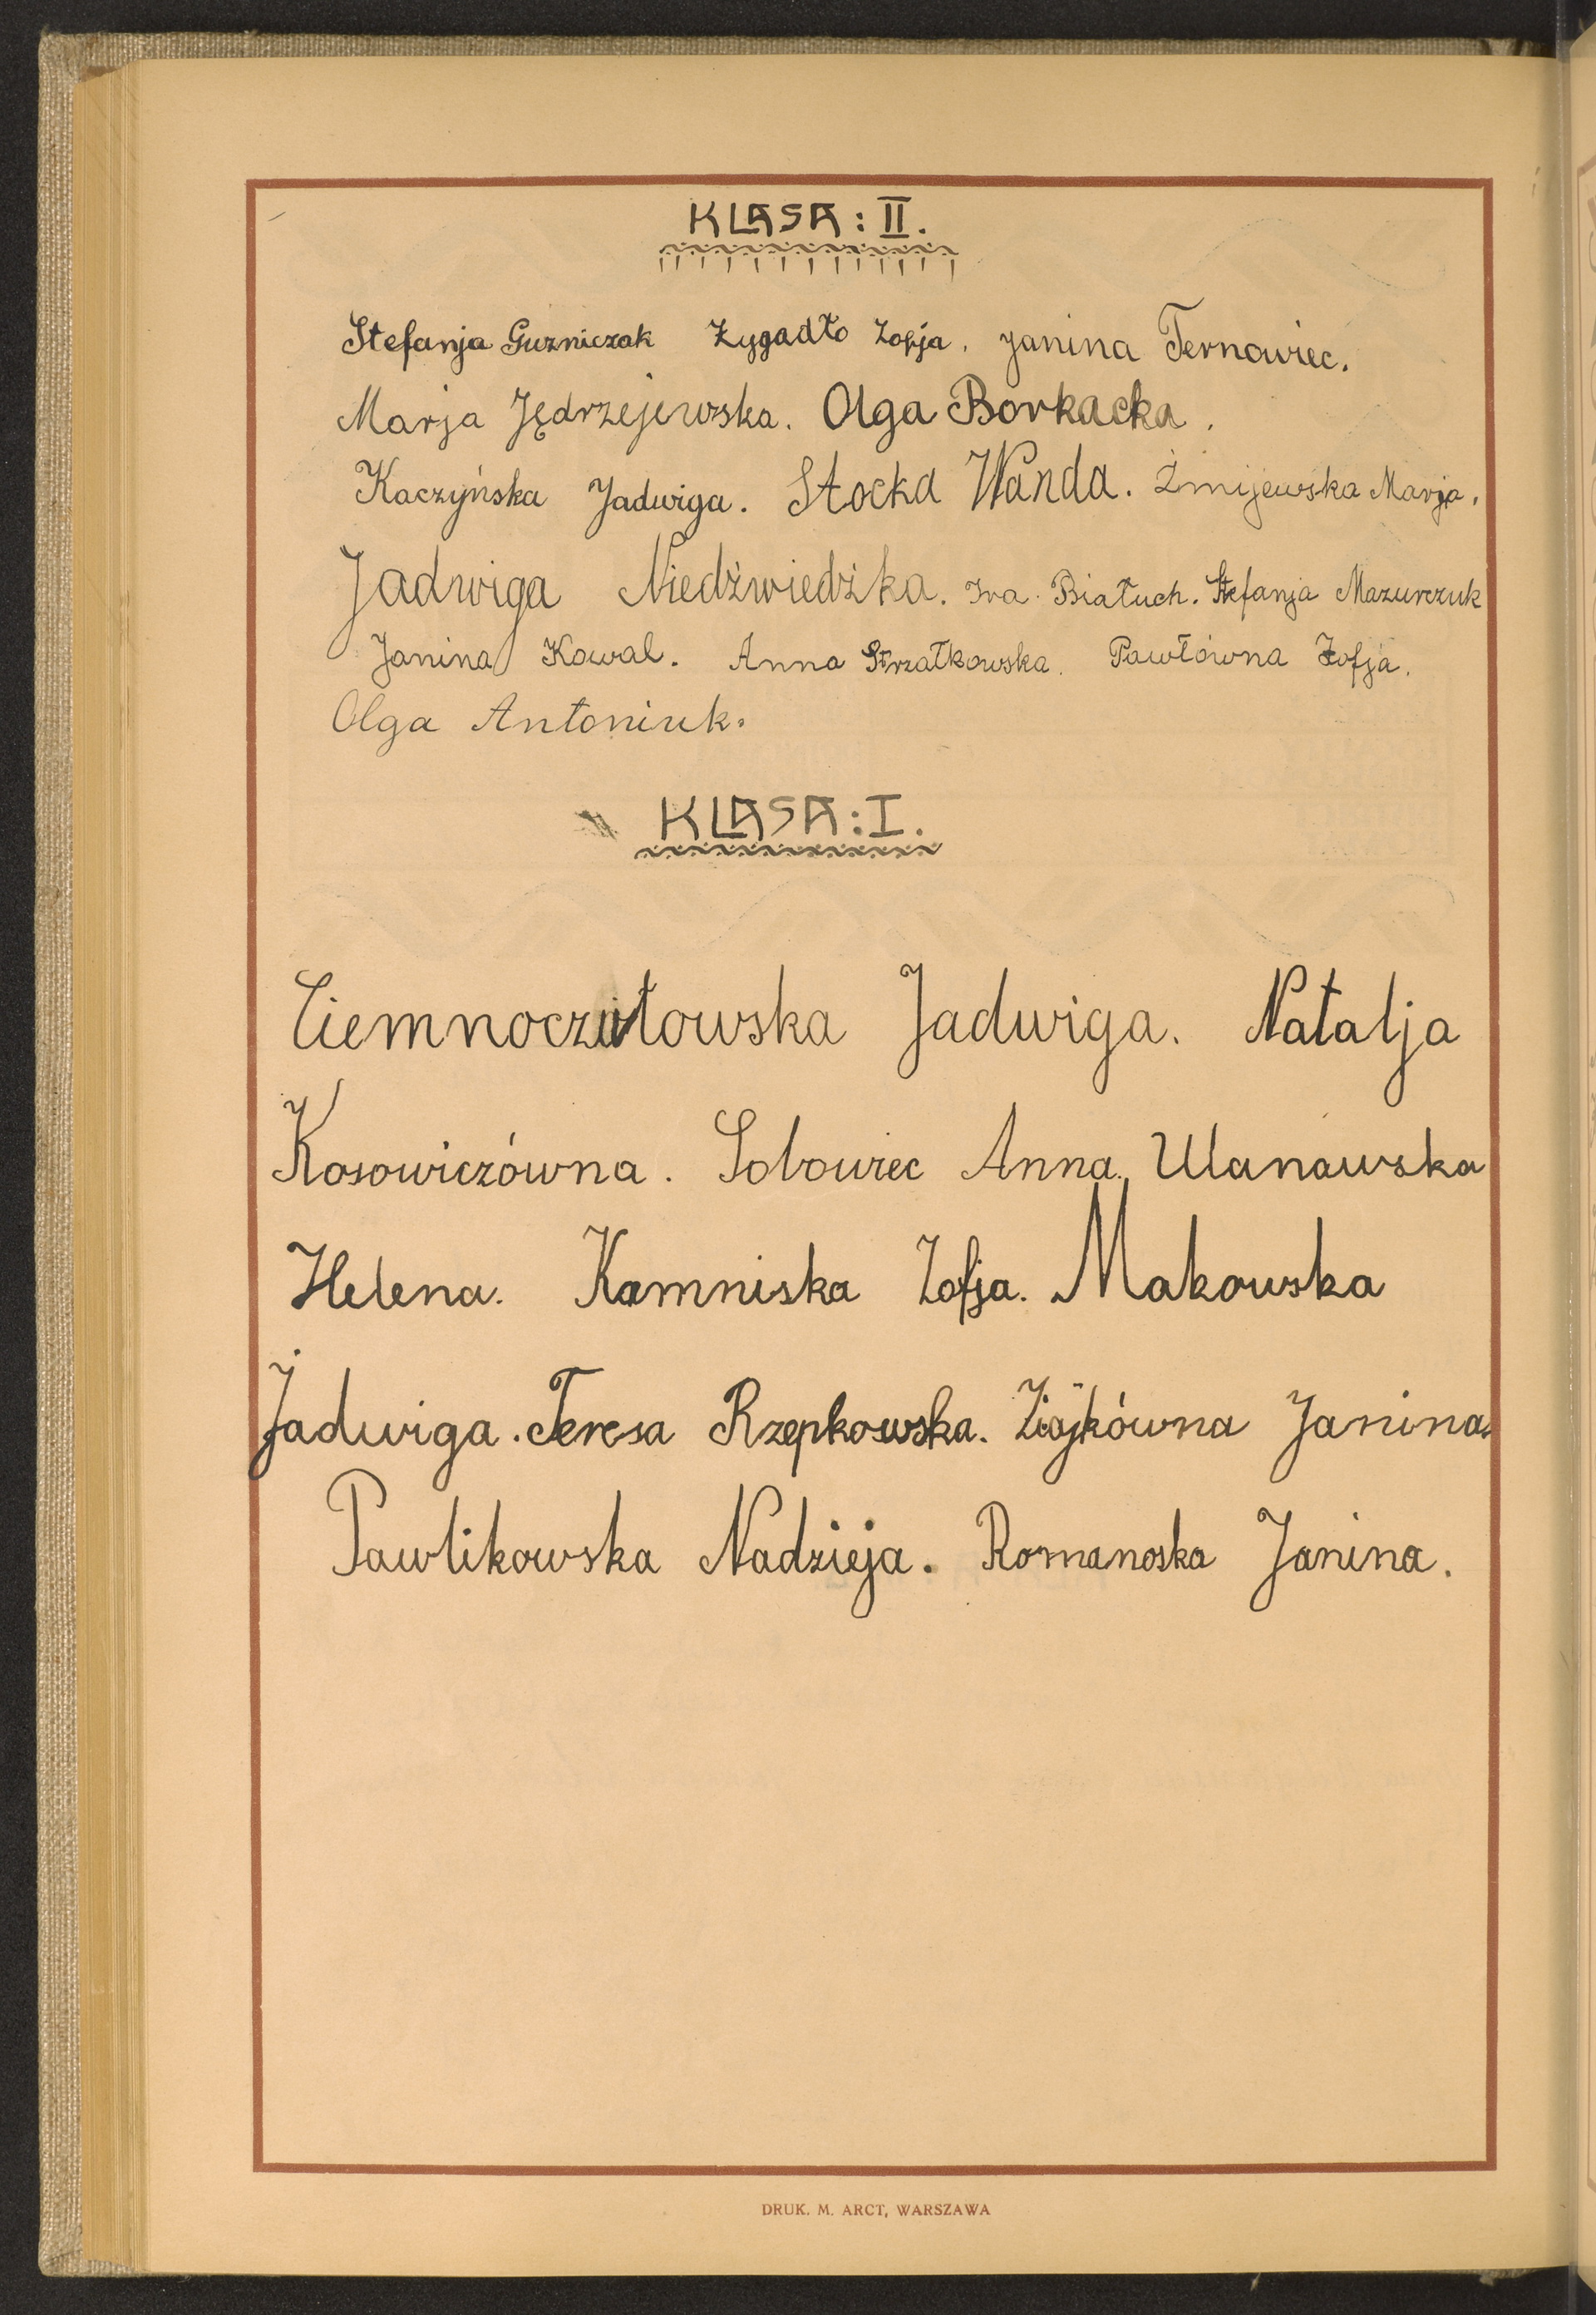 KLASA: II.
Stefanja Guzniczak Zygadło Zofja. Janina Ternowiec.
Marja Jędrzejewska. Olga Borkacka.
Kaczyńska Jadwiga. Stocka Wanda. Żmijewska Marja.
Jadwiga Niedźwiedźka. Iva. Białuch. Stefanja Mazurczuk
Janina Kowal. Anna Strzałkowska. Pawłówna Zofja.
Olga Antoniuk.
KLASA: I.
Ciemnoczułowska Jadwiga. Natalja
Kosowiczówna. Sobowiec Anna. Ulanawska
Helena. Kamniska Zofja. Makowska
Jadwiga. Teresa Rzepkowska. Ziajkówna Janina.
Pawlikowska Nadzieja. Romanoska Janina.
DRUK. M. ARCT, WARSZAWA